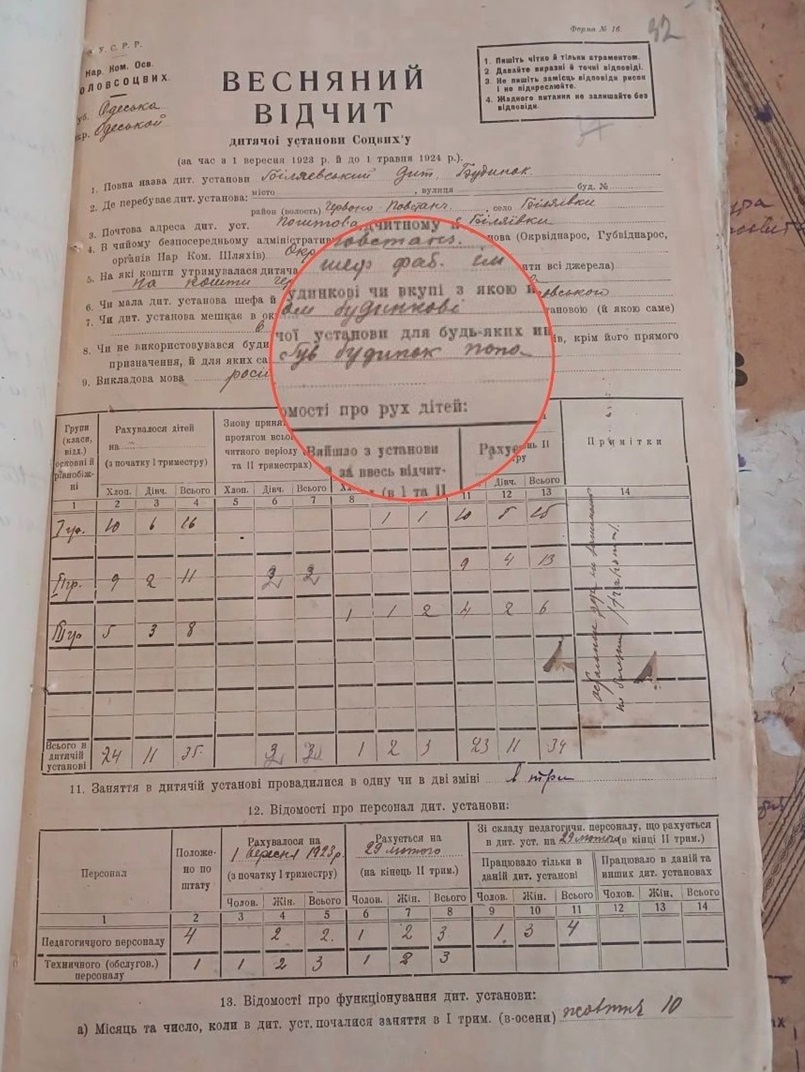 Форма № 16.
42
У. С. Р. Р.
Нар. Ком. Осв.
ОЛОВСОЦВИХ.
уб. Одеська
кр. Одеськой
ВЕСНЯНИЙ
ВІДЧИТ
дитячої установи Соцвих'у
(за час з 1 вересня 1923 р. й до 1 травня 1924 р.).
1. Пишіть чітко й тільки атраментом.
2 Давайте виразні й точні відповіді.
3. Не пишіть замісць відповіди рисок
і не підкреслюйте.
4. Жадного питання не залишайте без
відповіди.
1. Повна назва дит. установи Біляевський Дит. Будинок
2. Де перебуває дит. установа: місто , вулиця буд. №
район (волость) Червоно-Повстанч. , село Біляївки
3. Почтова адреса дит. уст. Поштова Біляївки
4. В чийому безпосередньому адміністратив читному й нова (Окрвіднарос, Губвіднарос,
органів Нар Ком. Шляхів) Окр повстанч.
5. На які кошти утримувалася дитяча яти всі джерела)
на кошти
шеф фаб. Ім
6. Чи мала дит. установа шефа й
7. Чи дит. установа мешкає в ок удинкові чи вкупі з якою тановою (й якою саме)
в ом будинкові
8. Чи не використовувався буди чої установи для будь-яких ин ів, крім його прямого
призначення, й для яких са був будинок попо
9. Викладова мова росій
омості про рух дітей:
Групи (класи, відд.) основні й рівнобіжні
Рахувалося дітей на (з початку I триместру)
Знову приня протягом всьо читного періоду та II триместрах)
Вийшло з установи за ввесь відчит- (в I та II
Раху нь II ру
Примітки
Хлоп. Дівч. Всього Хлоп. Дівч. Всього Дівч. Всього
1 2 3 4 5 6 7 8 11 12 13 14
I гр. 10 6 16 1 1 10 5 15
II гр. 9 2 11 2 2 9 4 13
III гр 5 3 8 1 1 2 4 2 6
Всього в дитячій установі 24 11 35 2 2 1 2 3 23 11 34
11. Заняття в дитячій установі провадилися в одну чи в дві зміні в три
12. Відомості про персонал дит. установи:
Персонал
Положено по штату
Рахувалося на 1 вересня 1923 р. (з початку I триместру)
Рахується на 29 лютого (на кінець II трим.)
Зі складу педагогичн. персоналу, що рахується в дит. уст. на 29 лютого (в кінці II трим.)
Працювало тільки в даній дит. установі
Працювало в даній та инших дит. установах
Чолов. Жін. Всього Чолов. Жін. Всього Чолов. Жін. Всього Чолов. Жін. Всього
1 2 3 4 5 6 7 8 9 10 11 12 13 14
Педагогичного персоналу 4 2 2 1 2 3 1 3 4
Техничного (обслугов.) персоналу 1 1 2 3 1 2 3
13. Відомості про функціонування дит. установи:
а) Місяць та число, коли в дит. уст. почалися заняття в I трим. (в-осени) жовтня 10